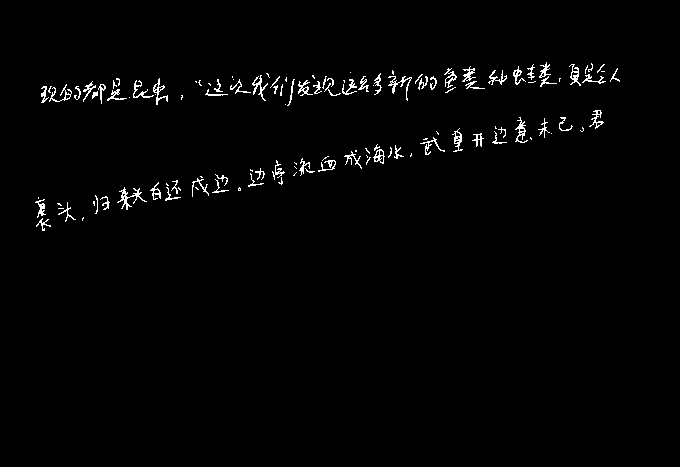 现的都是昆虫，“这次我们发现这么多新的鱼类和蛙类，真是令人
裹头，归来头白还戍边。边亭流血成海水，武皇开边意未已。君